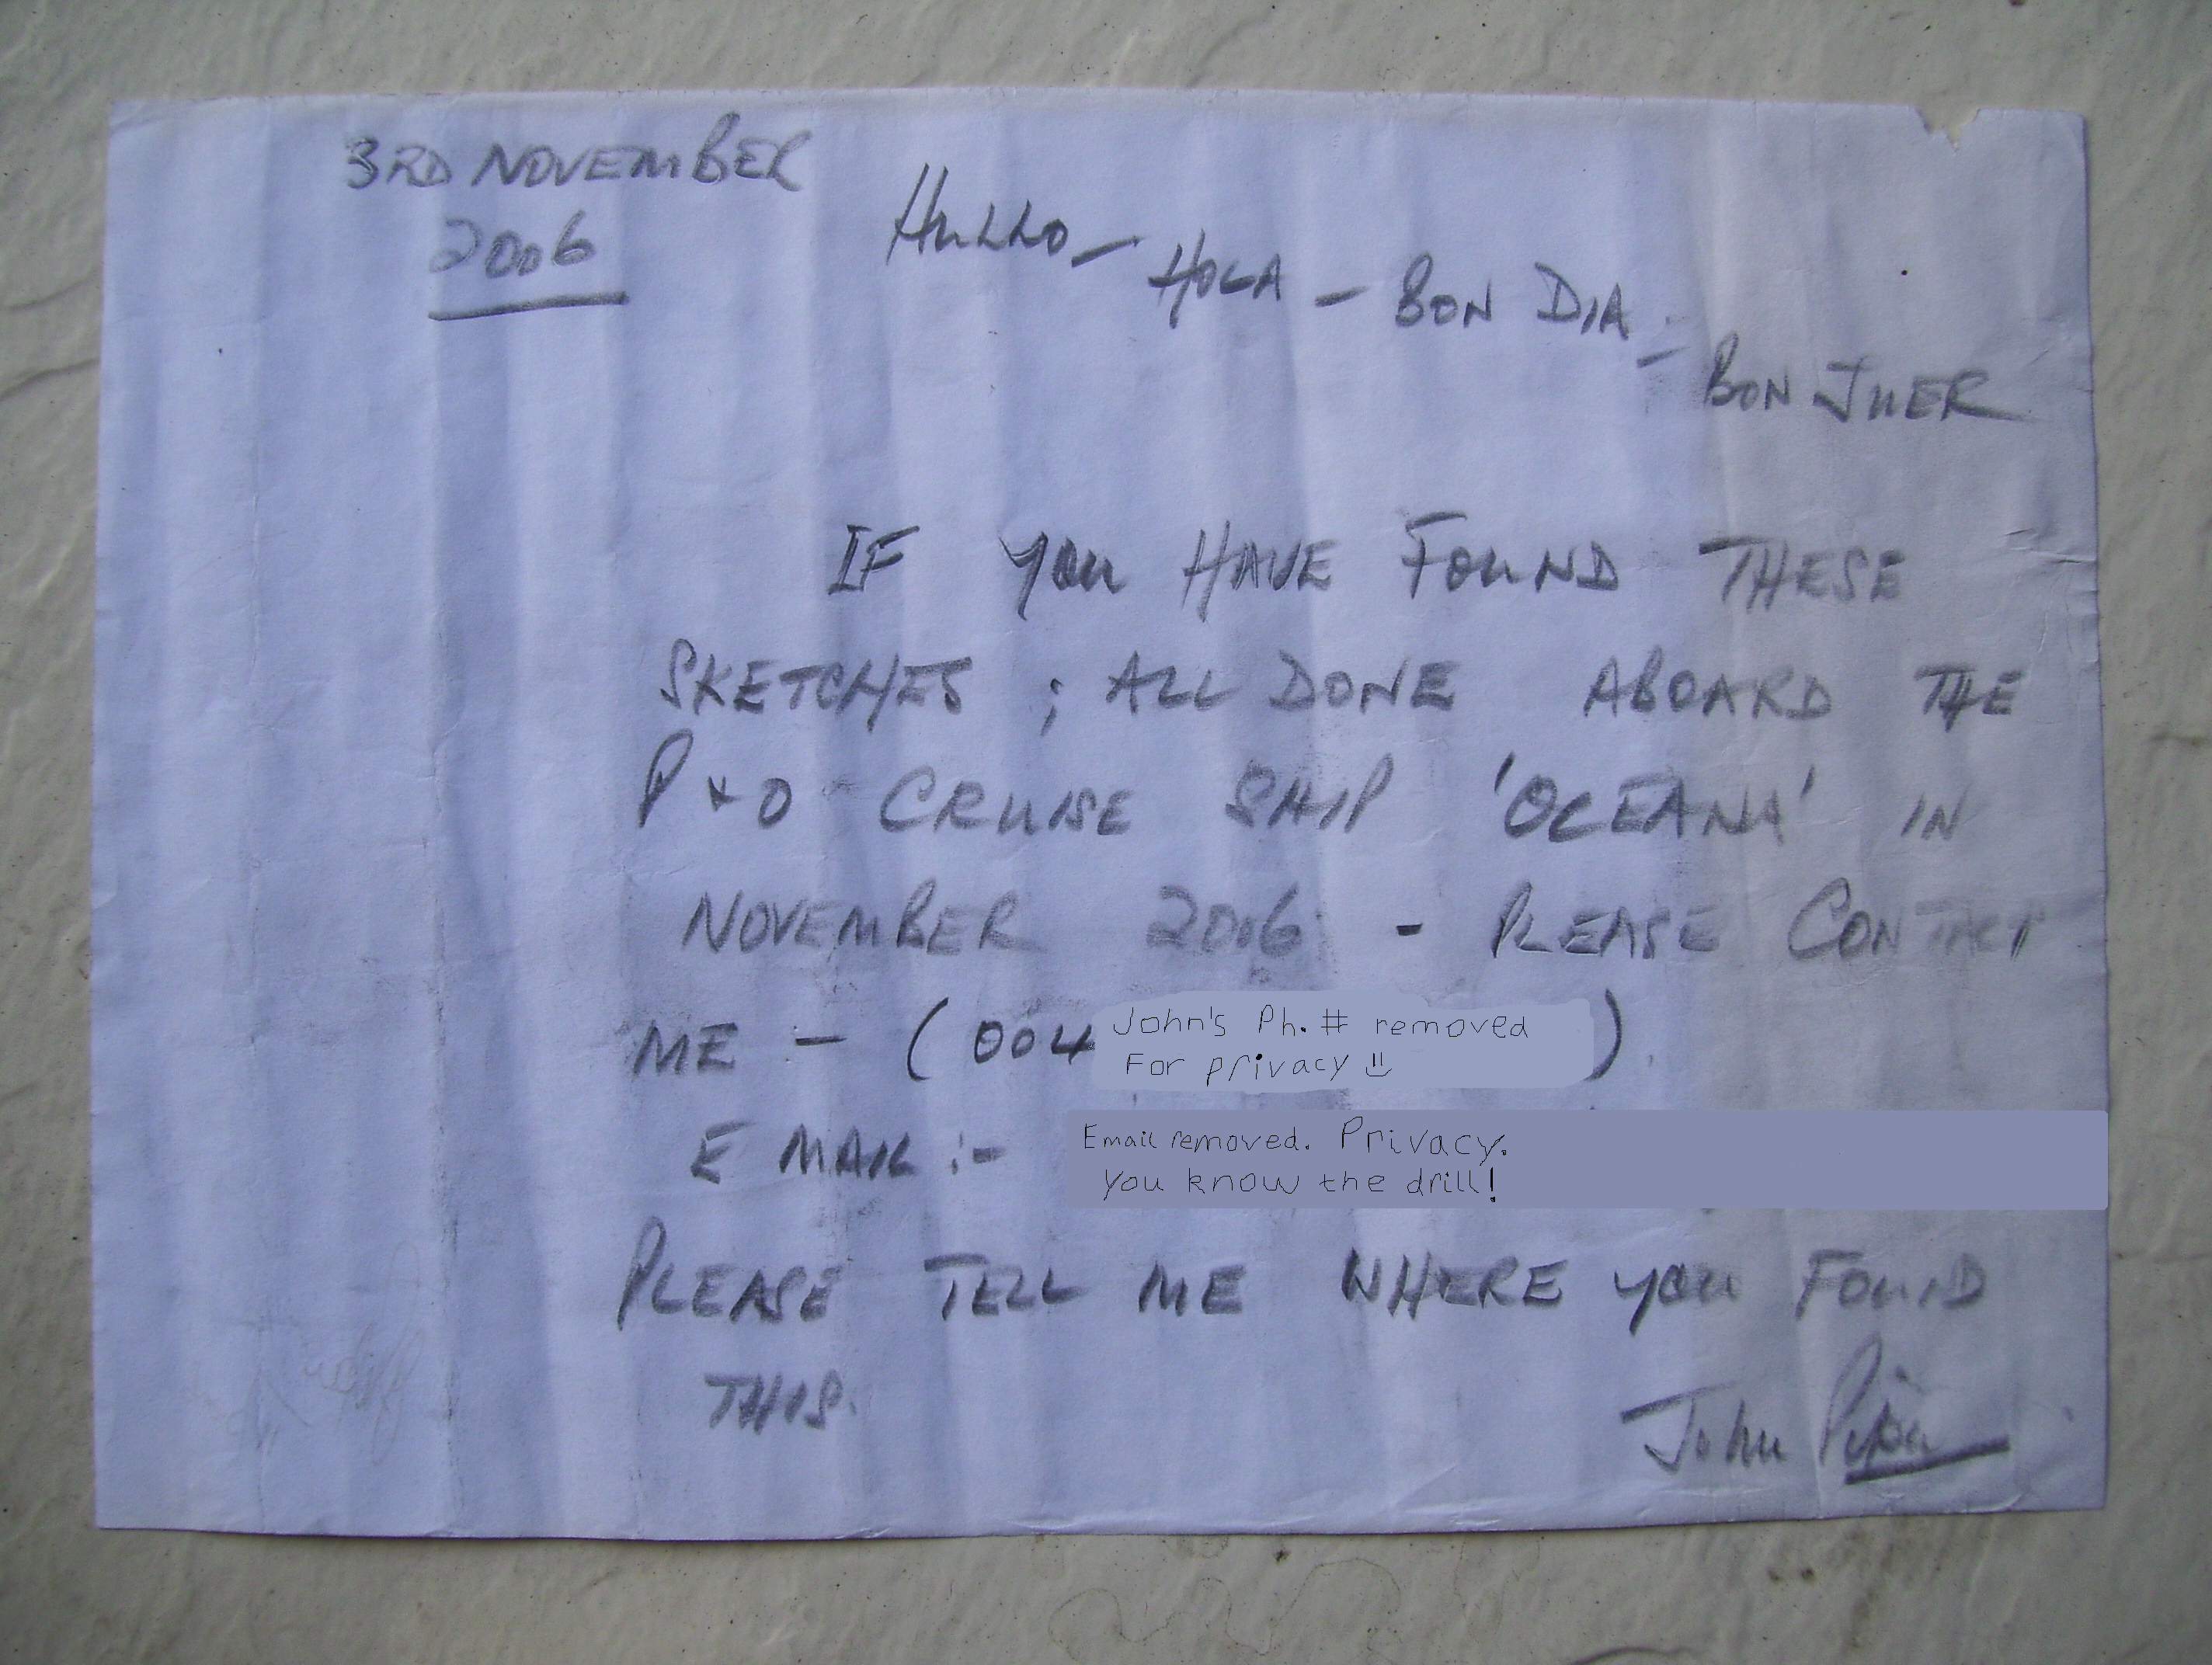 3RD NOVEMBER
2006
HULLO - HOLA - BON DIA - BON JUER
IF YOU HAVE FOUND THESE
SKETCHES ; ALL DONE ABOARD THE
P+O CRUISE SHIP 'OCEANA' IN
NOVEMBER 2006 - PLEASE CONTACT
ME - ( 004 John's Ph. # removed )
For privacy
E MAIL :- Email removed. Privacy.
You know the drill!
PLEASE TELL ME WHERE YOU FOUND
THIS.
John